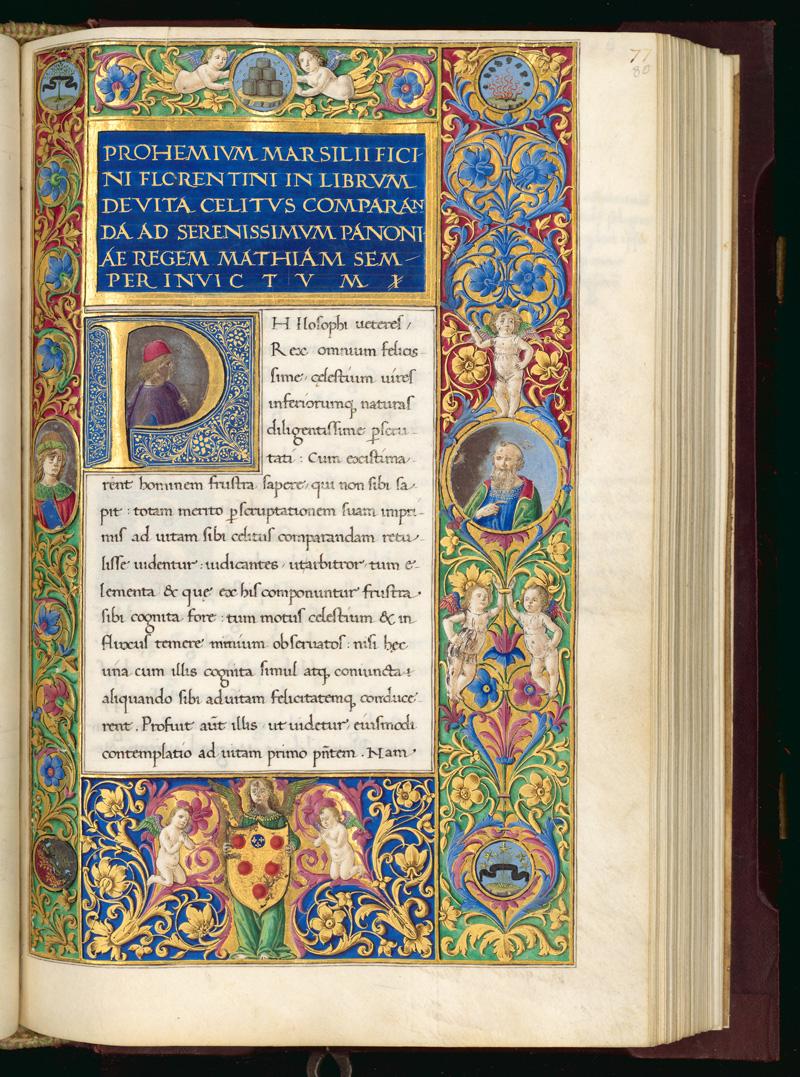 77
80
PROHEMIVM MARSILII FICI
NI FLORENTINI IN LIBRVM
DE VITA CELITVS COMPARAN
DA AD SERENISSIMVM PANONI
AE REGEM MATHIAM SEM-
PER INVICTVM
PHIlosophi ueteres,
Rex omnium felicis
sime, celestium uires
inferiorumq, naturas
diligentissime pscru-
tati: Cum existima-
rent hominem frustra sapere, qui non sibi sa-
pit: totam merito pscruptationem suam impri-
mis ad uitam sibi celitus comparandam retu-
lisse uidentur: iudicantes, utarbitror, tum e-
lementa & que ex his componuntur frustra
sibi cognita fore: tum motus celestium & in
fluxus temere nimium obseruatos: nisi hec
una cum illis cognita simul atq, coniuncta
aliquando sibi aduitam felicitatemq, conduce
rent. Profuit aūt illis, ut uidetur, eiusmodi
contemplatio ad uitam primo pñtem. Nam